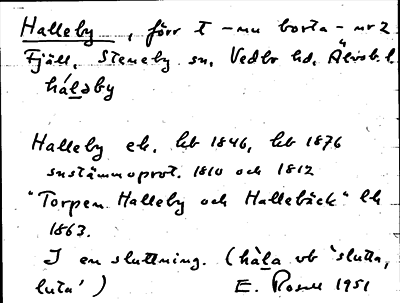 Halleby, förr t - nu borta - nr 2
Fjäll, Steneby sn, Vedbo hd, Älvsb. l.
hálaby
Halleby ek. kb 1846, kb 1876
snstämmoprot. 1810 och 1812
"Torpen Halleby och Hallebäck" lh
1863.
I en sluttning. (hàla vb 'slutta,
luta') E. Rosell 1951